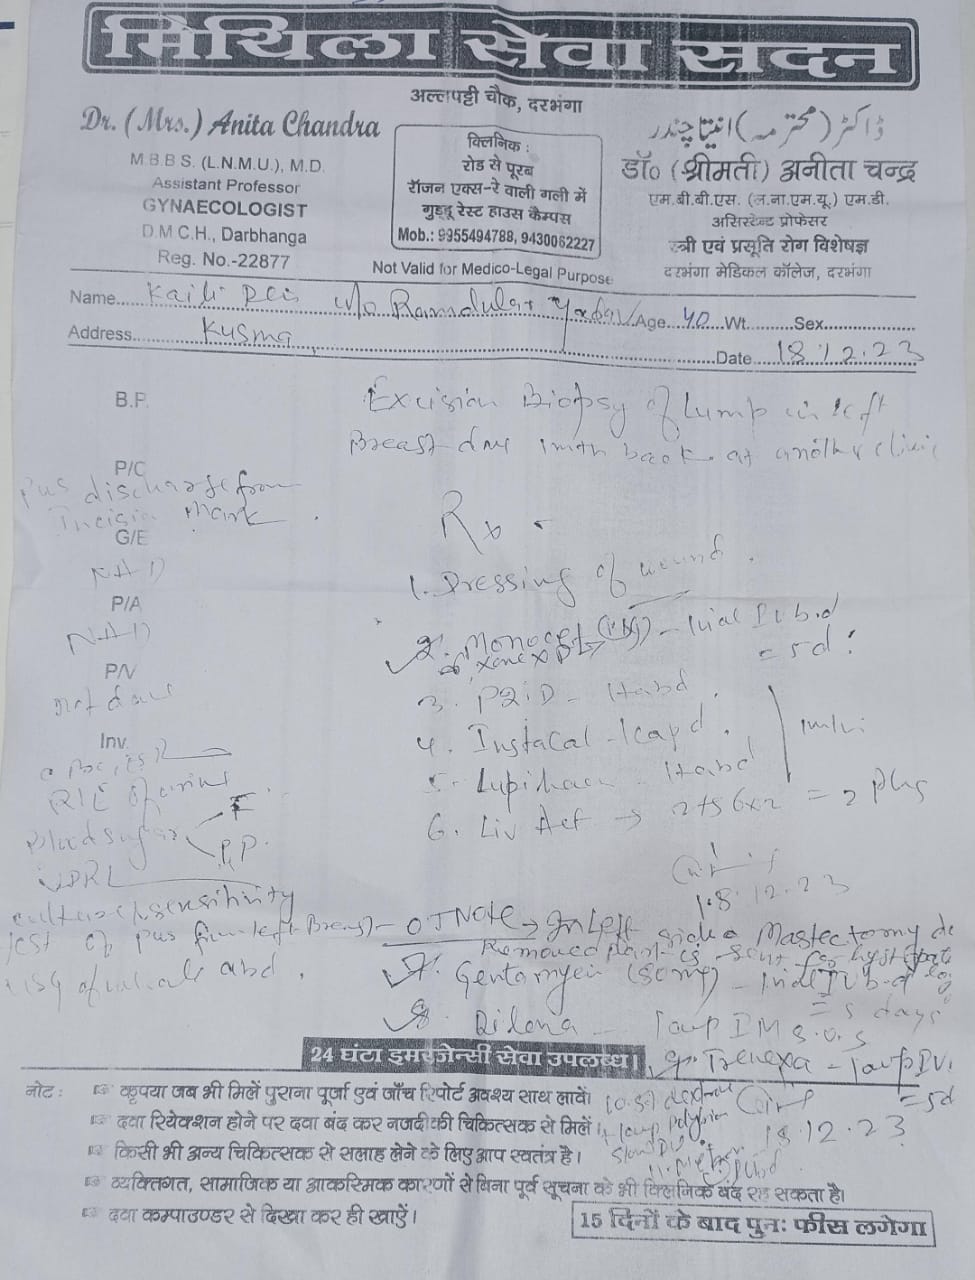 मिथिला सेवा सदन
अल्लपट्टी चौक, दरभंगा
Dr. (Mrs.) Anita Chandra
M.B.B.S. (L.N.M.U.), M.D.
Assistant Professor
GYNAECOLOGIST
D.M.C.H., Darbhanga
Reg. No.-22877
क्लिनिक :
रोड से पूरब
रॉजन एक्स-रे वाली गली में
गुड्डू रेस्ट हाउस कैम्पस
Mob.: 9955494788, 9430062227
Not Valid for Medico-Legal Purpose
ڈاکٹر (محترمہ) انیتا چندر
डॉ० (श्रीमती) अनीता चन्द्र
एम.बी.बी.एस. (ल.ना.एम.यू.) एम.डी.
असिस्टेन्ट प्रोफेसर
स्त्री एवं प्रसूति रोग विशेषज्ञ
दरभंगा मेडिकल कॉलेज, दरभंगा
Name Kaili Devi w/o Ramdular Yadav Age 40 Wt. Sex
Address Kusma Date 18.12.23
Excision Biopsy of lump in left
Breast done 1 mth back at another clinic
B.P.
P/C
Pus discharge from
Incision mark.
G/E
NAD
P/A
NAD
P/V
not done
Inv.
R/E of urine
Blood sugar F
PP
VDRL
culture & sensitivity
test of pus from left Breast
USG of whole abd.
Rx
1. Dressing of wound.
2. Monocef - 1 vial IV b.d
= 5d.
3. - 1 tab d.
4. Instacal - 1 cap d.
5. - 1 tab d
6. Liv Act → 2 tsf x 2 = 2 phs
18.12.23
OT Note → In Left side Mastectomy
Removed part is sent for
7. Gentamycin (80mg) - 1 vial IV b.d
= 5 days
8. Dilona - 1 amp IM S.O.S
9. Trenexa - 1 amp IV
= 5d
18.12.23
24 घंटा इमरजेन्सी सेवा उपलब्ध।
नोट :
कृपया जब भी मिलें पुराना पूर्जा एवं जाँच रिपोर्ट अवश्य साथ लावें।
दवा रियेक्शन होने पर दवा बंद कर नजदीकी चिकित्सक से मिलें।
किसी भी अन्य चिकित्सक से सलाह लेने के लिए आप स्वतंत्र है।
व्यक्तिगत, सामाजिक या आकस्मिक कारणों से बिना पूर्व सूचना के भी क्लिनिक बंद रह सकता है।
दवा कम्पाउण्डर से दिखा कर ही खाऐं।
15 दिनों के बाद पुन: फीस लगेगा